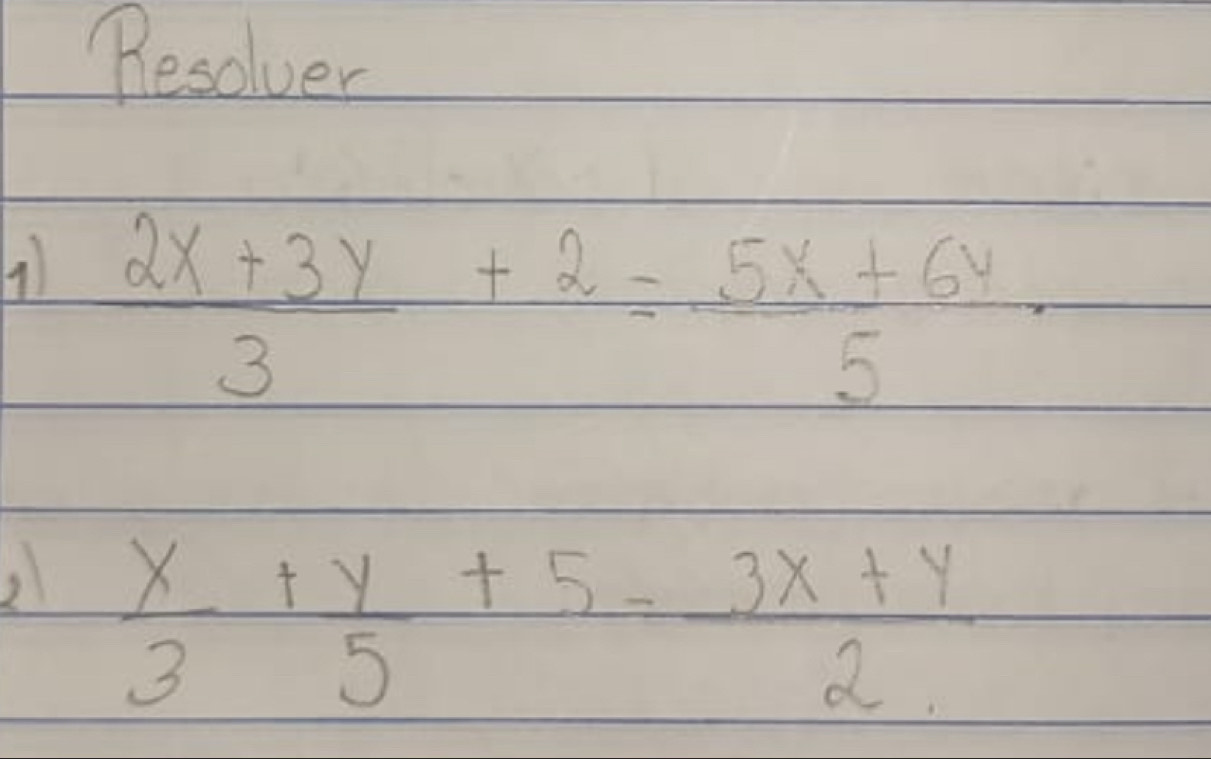 Resolver
1) 2x + 3y / 3 + 2 = 5x + 6y / 5
2) x / 3 + y / 5 + 5 - 3x + y / 2.